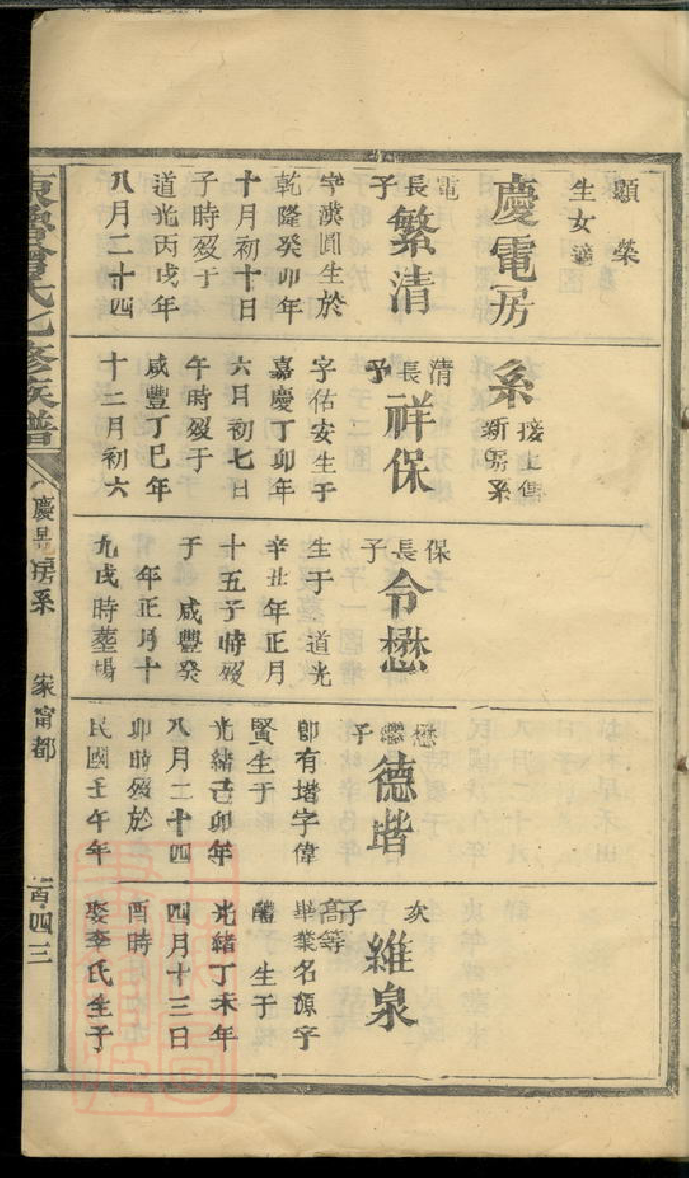 顯榮
生女適
慶電房
系
接上舊
新房系
電長子
繁清
字漢圓生於
乾隆癸卯年
十月初十日
子時歿于
道光丙戌年
八月二十四
清長子
祥保
字佑安生于
嘉慶丁卯年
六日初七日
午時歿于
咸豐丁巳年
十二月初六
保長子
令懋
生于道光
辛丑年正月
十五子時歿
于咸豐癸
年正月十
九戌時塟場
懋繼子
德堦
即有堦字偉
賢生于
光緒己卯年
八月二十四
卯時歿於
民國壬午年
次子
維泉
高等
畢業名源字
醴生于
光緒丁未年
四月十三日
酉時
娶李氏生于
東魯曾氏七修族譜
八
慶房系
家甯都
百四三